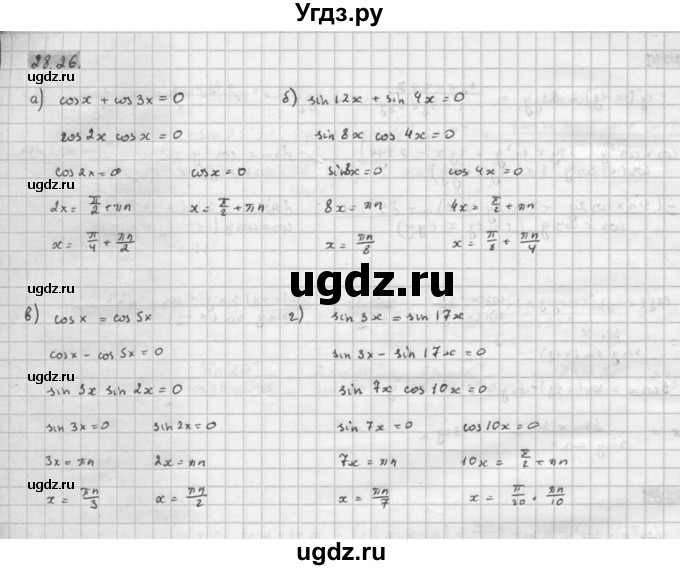 gdz.ru
28.26.
ugdz.ru
а) cos x + cos 3x = 0
cos 2x cos x = 0
cos 2x = 0 cos x = 0
2x = π/2 + πn x = π/2 + πn
x = π/4 + πn/2
б) sin 12x + sin 4x = 0
sin 8x cos 4x = 0
sin 8x = 0 cos 4x = 0
8x = πn 4x = π/2 + πn
x = πn/8 x = π/8 + πn/4
ugdz.ru
ugdz.ru
gdz.ru
в) cos x = cos 5x
cos x - cos 5x = 0
sin 3x sin 2x = 0
sin 3x = 0 sin 2x = 0
3x = πn 2x = πn
x = πn/3 x = πn/2
г) sin 3x = sin 17x
sin 3x - sin 17x = 0
sin 7x cos 10x = 0
sin 7x = 0 cos 10x = 0
7x = πn 10x = π/2 + πn
x = πn/7 x = π/20 + πn/10
ugdz.ru
ugdz.ru
ugdz.ru